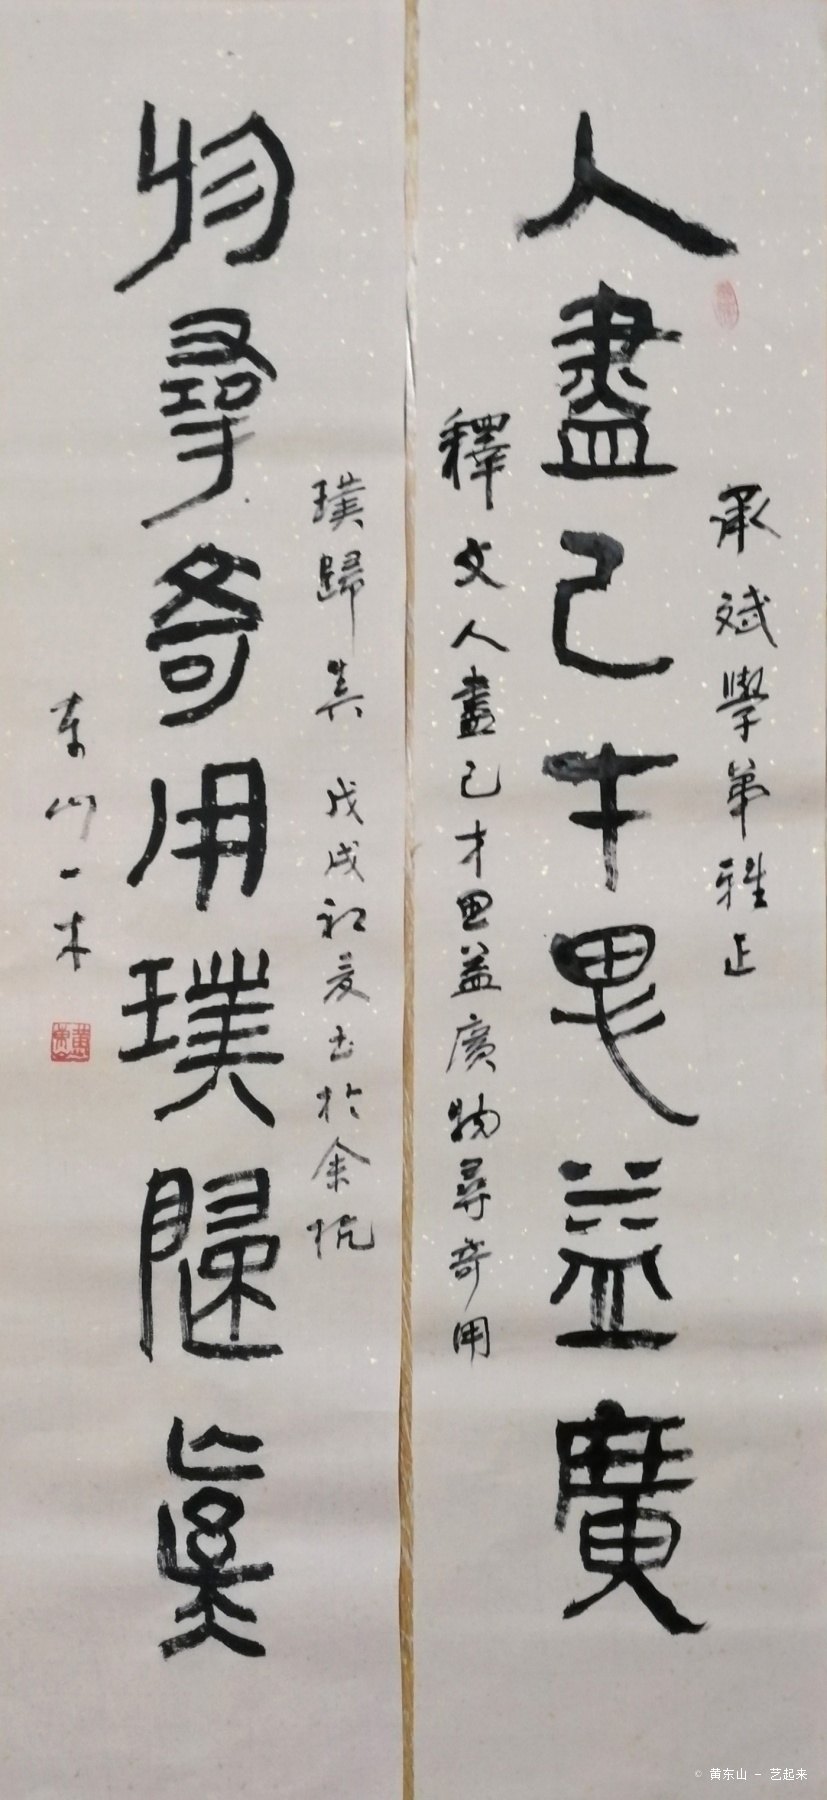 承斌學弟雅正
人盡己才思益廣
釋文人盡己才思益廣物尋奇用
璞歸真 戊戌初夏書於余杭
物尋奇用璞歸真
東山一木
© 黄东山 - 艺起来